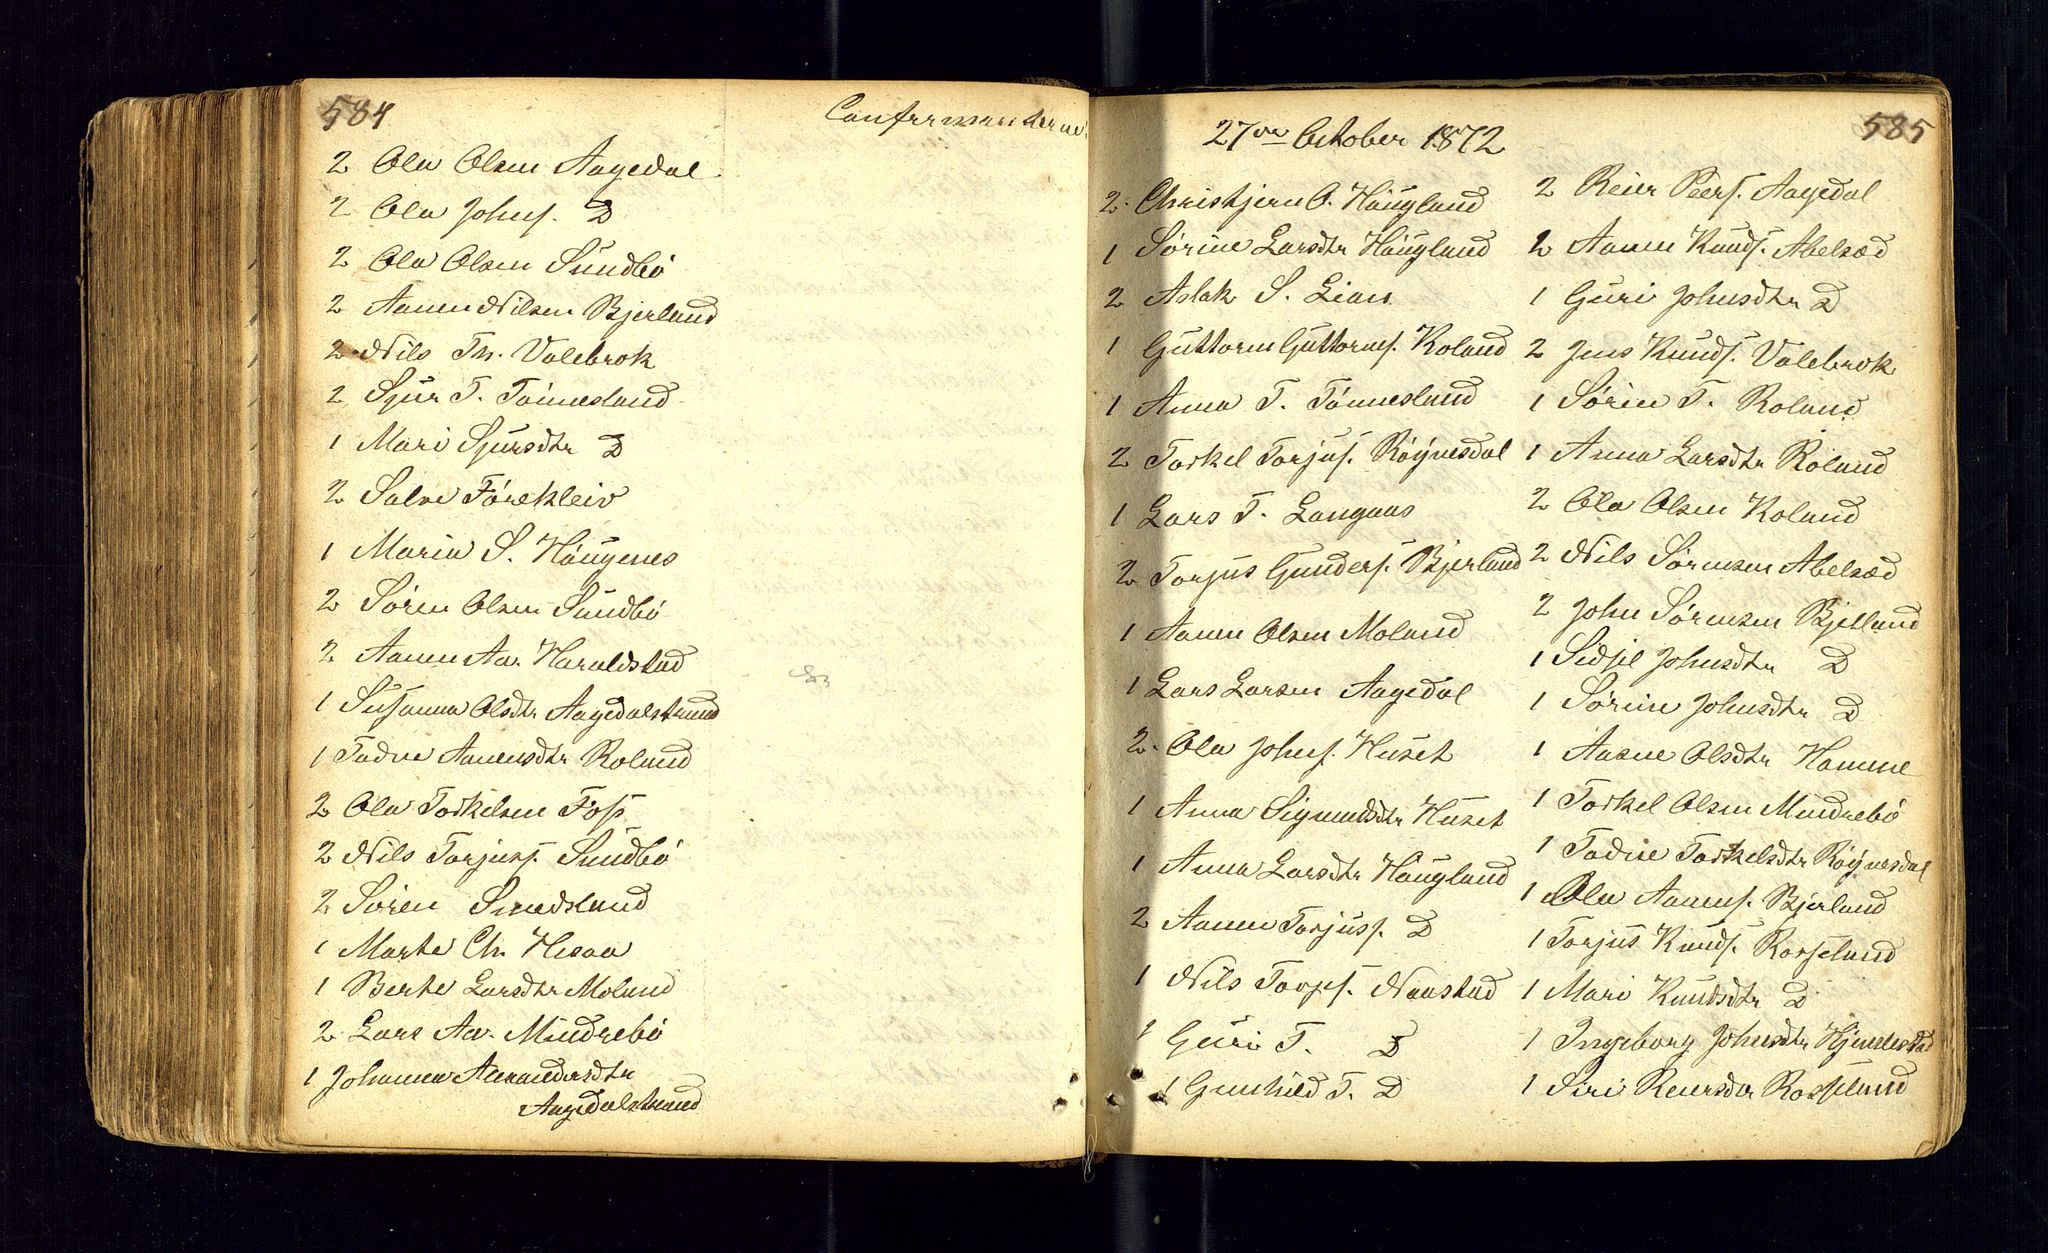 584
Confirmanterne
2 Ola Olsen Aagedal
2 Ola Johns. D
2 Ola Olsen Sundbö
2 Aanen Nilsen Bjerland
2 Nils Th. Valebrok
2 Sjur T. Tönnesland
1 Mari Sjursdtr D
2 Salve Förekleiv
1 Maria S. Höugenes
2 Sören Olsen Sundbö
2 Aanen Aa. Haraldstad
1 Susanna Olsdtr Aagedalstrand
1 Tadne Aanensdtr Roland
2 Ola Torkelsen Foss
2 Nils Torjuss. Sundbö
2 Sören Smedsland
1 Marte Ch. Hesaa
1 Berte Larsdtr Moland
2 Lars Aa. Mindrebö
1 Johanna Alexandersdtr
Aagedalstrand
585
27de October 1872
2 Christjern O. Höugland
1 Sörine Larsdtr Höugland
2 Aslak S. Lian
1 Guttorm Guttorms. Roland
1 Anna T. Tönnesland
2 Torkel Torjus. Röynesdal
1 Lars T. Langaas
2 Torjus Gunders. Bjerland
1 Aanen Olsen Moland
1 Lars Larsen Aagedal
2 Ola Johns. Huset
1 Anna Sigmundsdtr Huset
1 Anna Larsdtr Höugland
2 Aanen Torjuss. D
1 Nils Torjs. Naastad
1 Guri T. D
1 Gunhild T. D
2 Reier Peers. Aagedal
2 Aanen Knuds. Abelsæd
1 Guri Johnsdtr D
2 Jens Knuds. Valebrok
1 Sören T. Roland
1 Anna Larsdtr Roland
2 Ola Olsen Roland
2 Nils Sörensen Abelsæd
2 John Sörensen Bjelland
1 Sidsel Johnsdtr D
1 Sörine Johnsdtr D
1 Aasne Olsdtr Homme
1 Torkel Olsen Mindrebö
1 Tadne Torkelsdtr Röynesdal
1 Ola Aanens. Bjerland
1 Torjus Knuds. Rosseland
1 Mari Knudsdtr D
1 Ingeborg Johnsdtr Hjemlestad
1 Siri Reiersdtr Rosseland